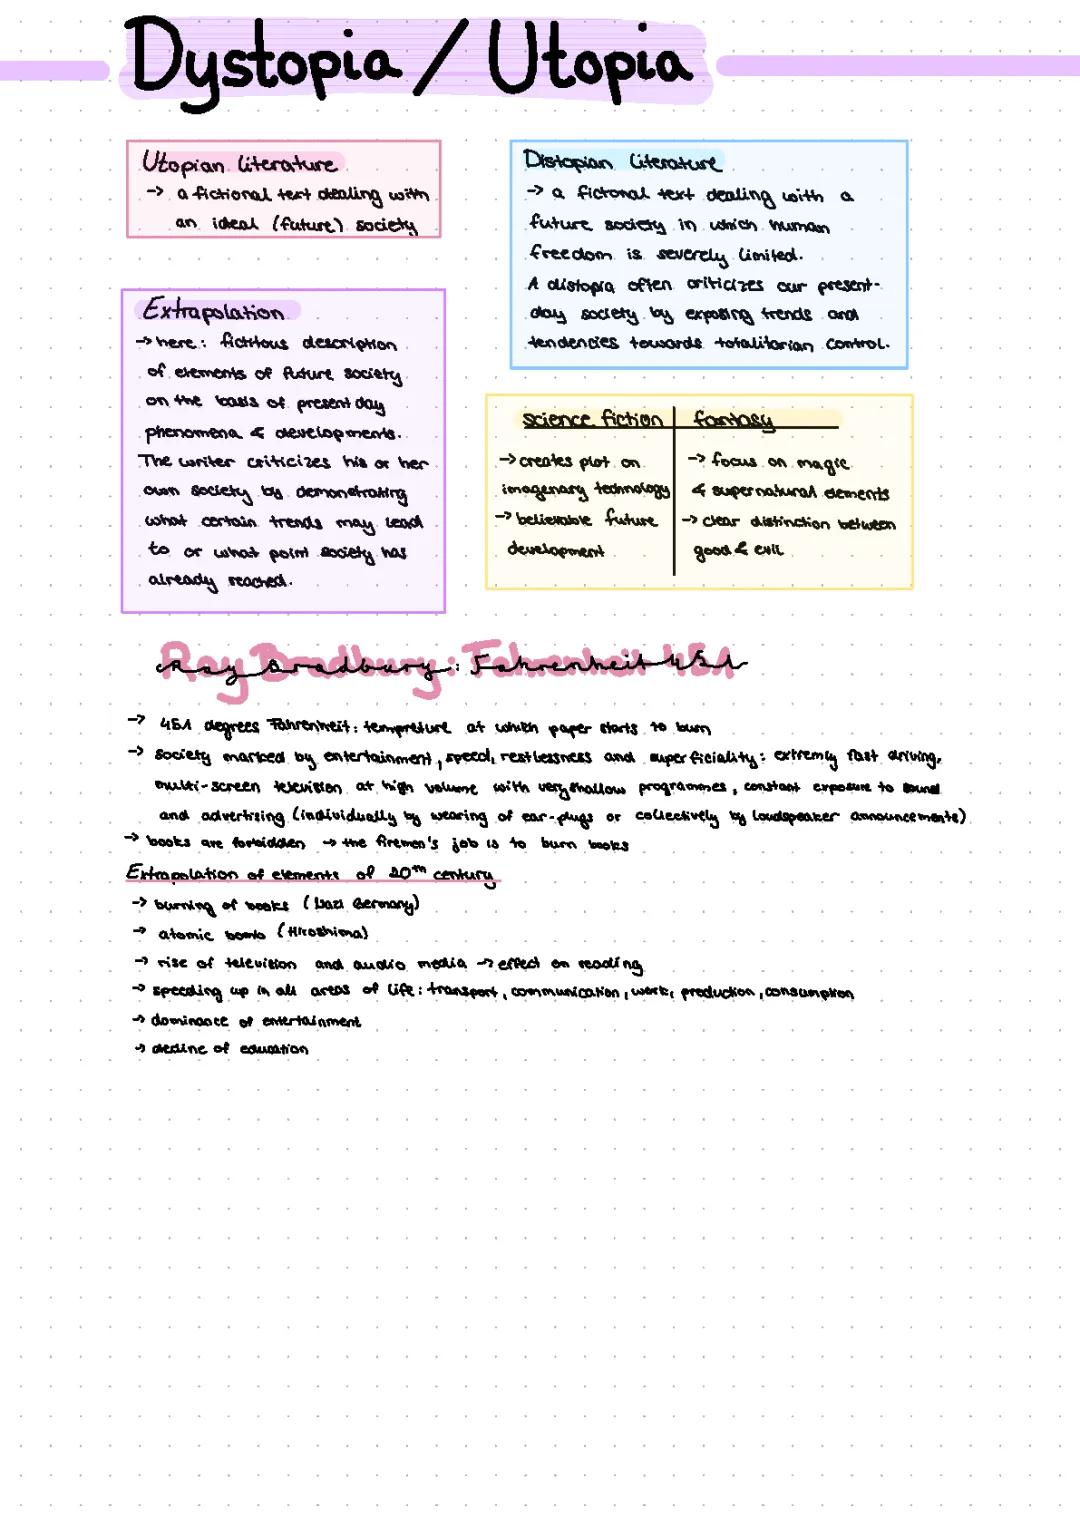 Dystopia / Utopia
Utopian literature
-> a fictional text dealing with
an ideal (future) society
Distopian literature
-> a fictonal text dealing with a
future society in which human
freedom is severely limited.
A distopia often criticizes our present-
day society by exposing trends and
tendencies towards totalitarian control.
Extrapolation
-> here: fictitous description
of elements of future society
on the basis of present day
phenomena & developments.
The writer criticizes his or her
own society by demonstrating
what certain trends may lead
to or what point society has
already reached.
science fiction
-> creates plot on
imagenary technology
-> believable future
development
fantasy
-> focus on magic
& supernatural elements
-> clear distinction between
good & evil
Ray Bradbury: Fahrenheit 451
-> 451 degrees Fahrenheit: tempreture at which paper starts to burn
-> society marked by entertainment, speed, restlessness and superficiality: extremly fast driving,
multi-screen television at high volume with very shallow programmes, constant exposure to sound
and advertising (individually by wearing of ear-plugs or collectively by loudspeaker announcements)
-> books are forbidden -> the firemen's job is to burn books
Extrapolation of elements of 20th century
-> burning of books (Nazi Germany)
-> atomic bomb (Hiroshima)
-> rise of television and audio media -> effect on reading
-> speeding up in all areas of life: transport, communication, work, production, consumption
-> dominance of entertainment
-> decline of education